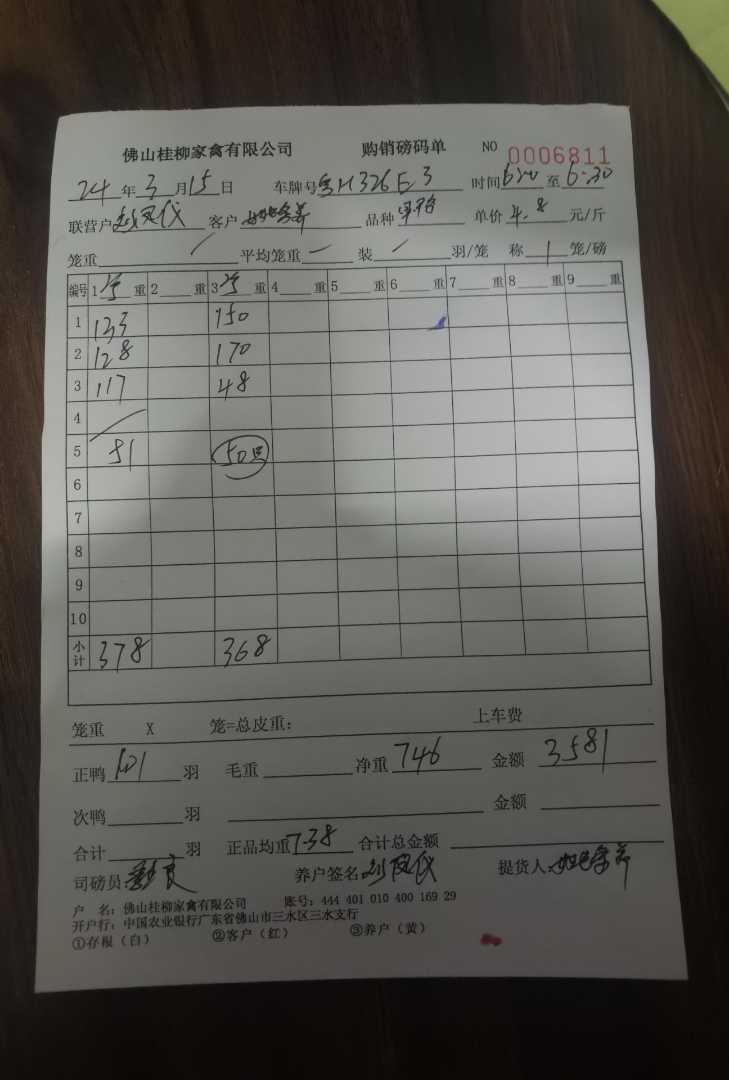 佛山桂柳家禽有限公司 购销磅码单 NO 0006811
24 年 3 月 15 日 车牌号 粤H326E3 时间 至 6:30
联营户 客户 品种 单价 4.8 元/斤
笼重 平均笼重 装 羽/笼 称 1 笼/磅
编号 1 净 重 2 重 3 净 重 4 重 5 重 6 重 7 重 8 重 9 重
1 133 150
2 128 170
3 117 48
4
5 51 50只
6
7
8
9
10
小计 378 368
笼重 X 笼=总皮重: 上车费
正鸭 101 羽 毛重 净重 746 金额 3581
次鸭 羽 金额
合计 羽 正品均重 7.38 合计总金额
司磅员: 养户签名: 提货人:
户 名: 佛山桂柳家禽有限公司 账号: 444 401 010 400 169 29
开户行: 中国农业银行广东省佛山市三水区三水支行
①存根（白） ②客户（红） ③养户（黄）